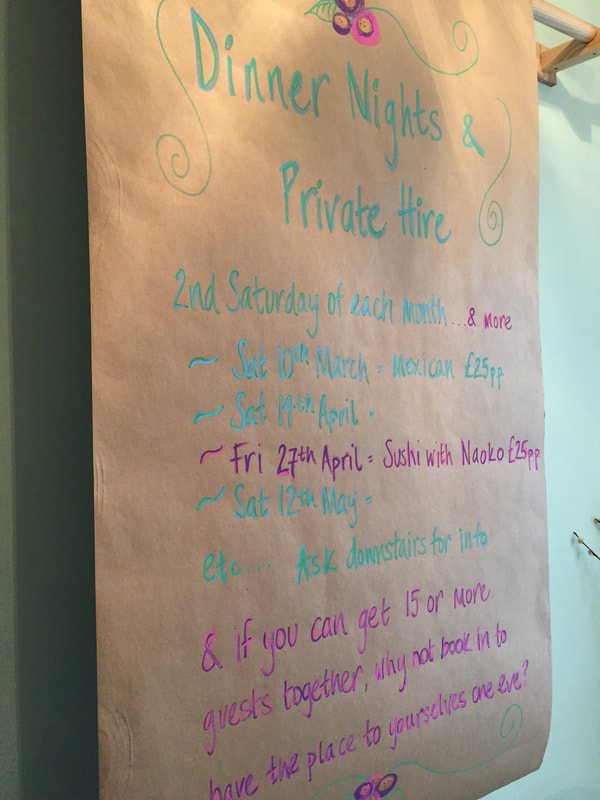 Dinner Nights &
Private Hire
2nd Saturday of each month ...& more
~ Sat 10th March = Mexican £25pp
~ Sat 14th April -
~ Fri 27th April = Sushi with Naoko £25pp
~ Sat 12th May =
etc... Ask downstairs for info
& if you can get 15 or more
guests together, why not book in to
have the place to yourselves one eve?